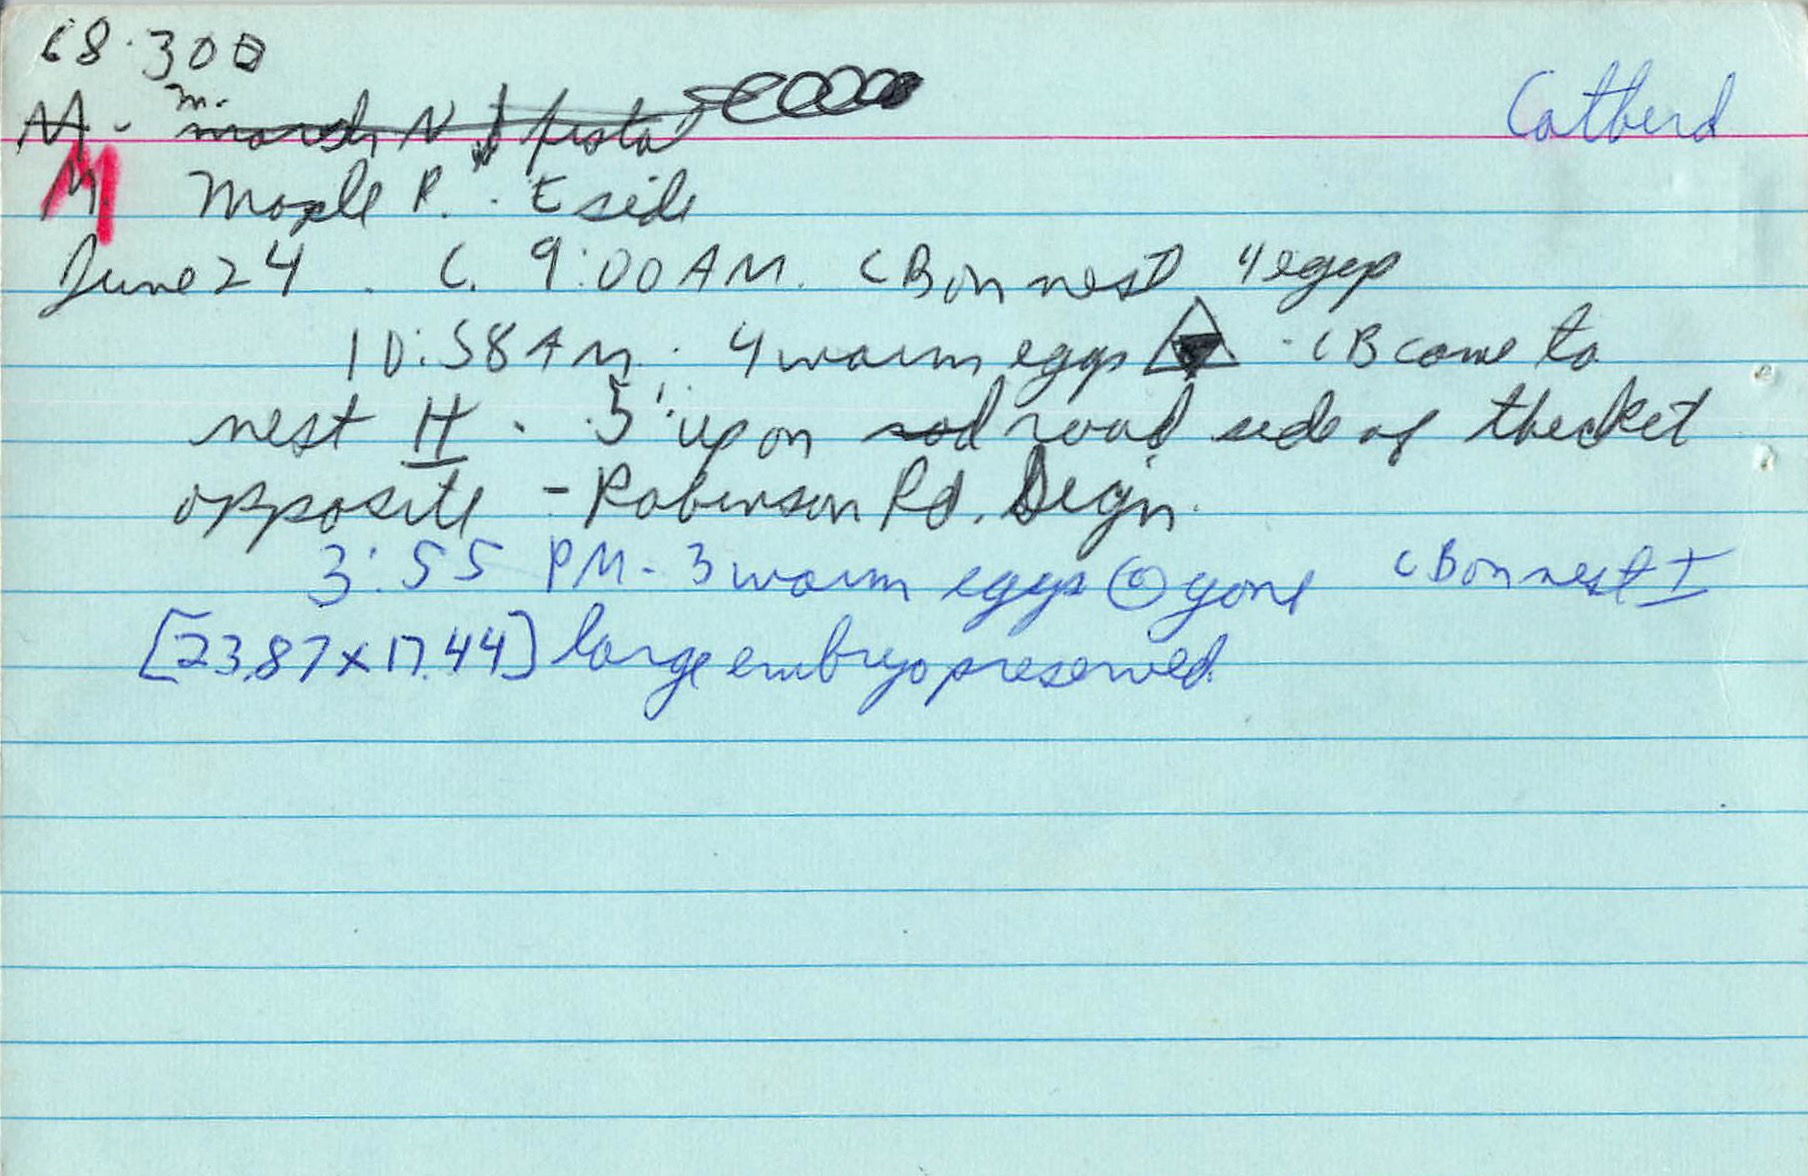 68.300
Catberd
M - m. marsh N
M. Maple R. . E side
June 24 . C. 9:00 AM. CB on nest 4 eggs
10:58 AM. 4 warm eggs . CB came to
nest H . .5' up on road side of thicket
opposite - Robinson Rd. Sign.
3:55 PM - 3 warm eggs gone CB on nest I
[23.87 x 17.44] large embryo preserved.